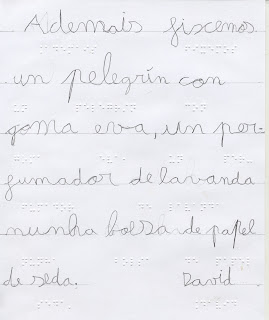 Ademais fixemos
un pelegrín con
goma eva, un per-
fumador de lavanda
nunha bolsa de papel
de seda. David